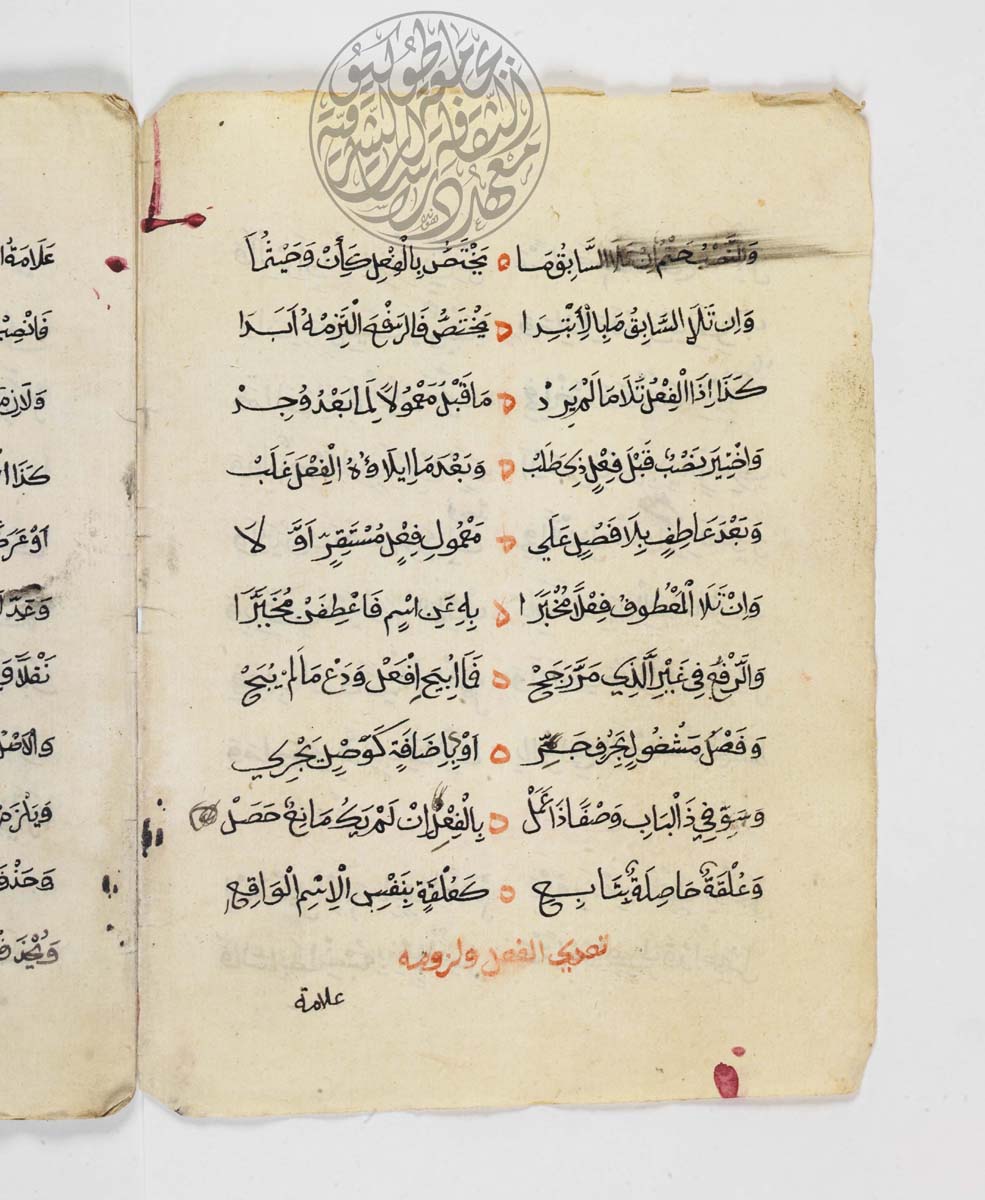 جامعة طوكيو
معهد دراسات الثقافة الشرقية
وَالنَّصْبُ حَتْمٌ اِنْ تَلَا السَّابِقُ مَا ه يَخْتَصُّ بِالْفِعْلِ كَأَنْ وَحَيْثُمَا
وَاِنْ تَلَا السَّابِقُ مَا بِالْاِبْتِدَا ه يَخْتَصُّ فَالرَّفْعَ الْتَزِمْهُ اَبَدَا
كَذَا اِذَا الْفِعْلُ تَلَا مَا لَمْ يَرِدْ ه مَا قَبْلُ مَعْمُولًا لِمَا بَعْدُ وُجِدْ
وَاخْتِيرَ نَصْبٌ قَبْلَ فِعْلٍ ذِي طَلَبْ ه وَبَعْدَ مَا اِيلَاؤُهُ الْفِعْلَ غَلَبْ
وَبَعْدَ عَاطِفٍ بِلَا فَصْلٍ عَلَي ه مَعْمُولِ فِعْلٍ مُسْتَقِرٍّ اَوَّلَا
وَاِنْ تَلَا الْمَعْطُوفُ فِعْلًا مُخْبَرَا ه بِهِ عَنِ اسْمٍ فَاعْطِفَنْ مُخَيَّرَا
وَالرَّفْعُ فِي غَيْرِ الَّذِي مَرَّ رَجَحْ ه فَمَا اُبِيحَ اِفْعَلْ وَدَعْ مَا لَمْ يُبَحْ
وَفَصْلُ مَشْغُولٍ بِحَرْفِ جَرِّ ه اَوْ بِاِضَافَةٍ كَوَصْلٍ يَجْرِي
وَسَوِّ فِي ذَا الْبَابِ وَصْفًا ذَا عَمَلْ ه بِالْفِعْلِ اِنْ لَمْ يَكُ مَانِعٌ حَصَلْ
وَعُلْقَةٌ حَاصِلَةٌ بِتَابِعِ ه كَعُلْقَةٍ بِنَفْسِ الْاِسْمِ الْوَاقِعِ
تعدي الفعل ولزومه
علامة